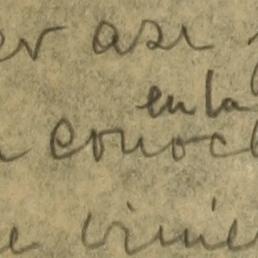 er asi
en la
conoc
e vinie